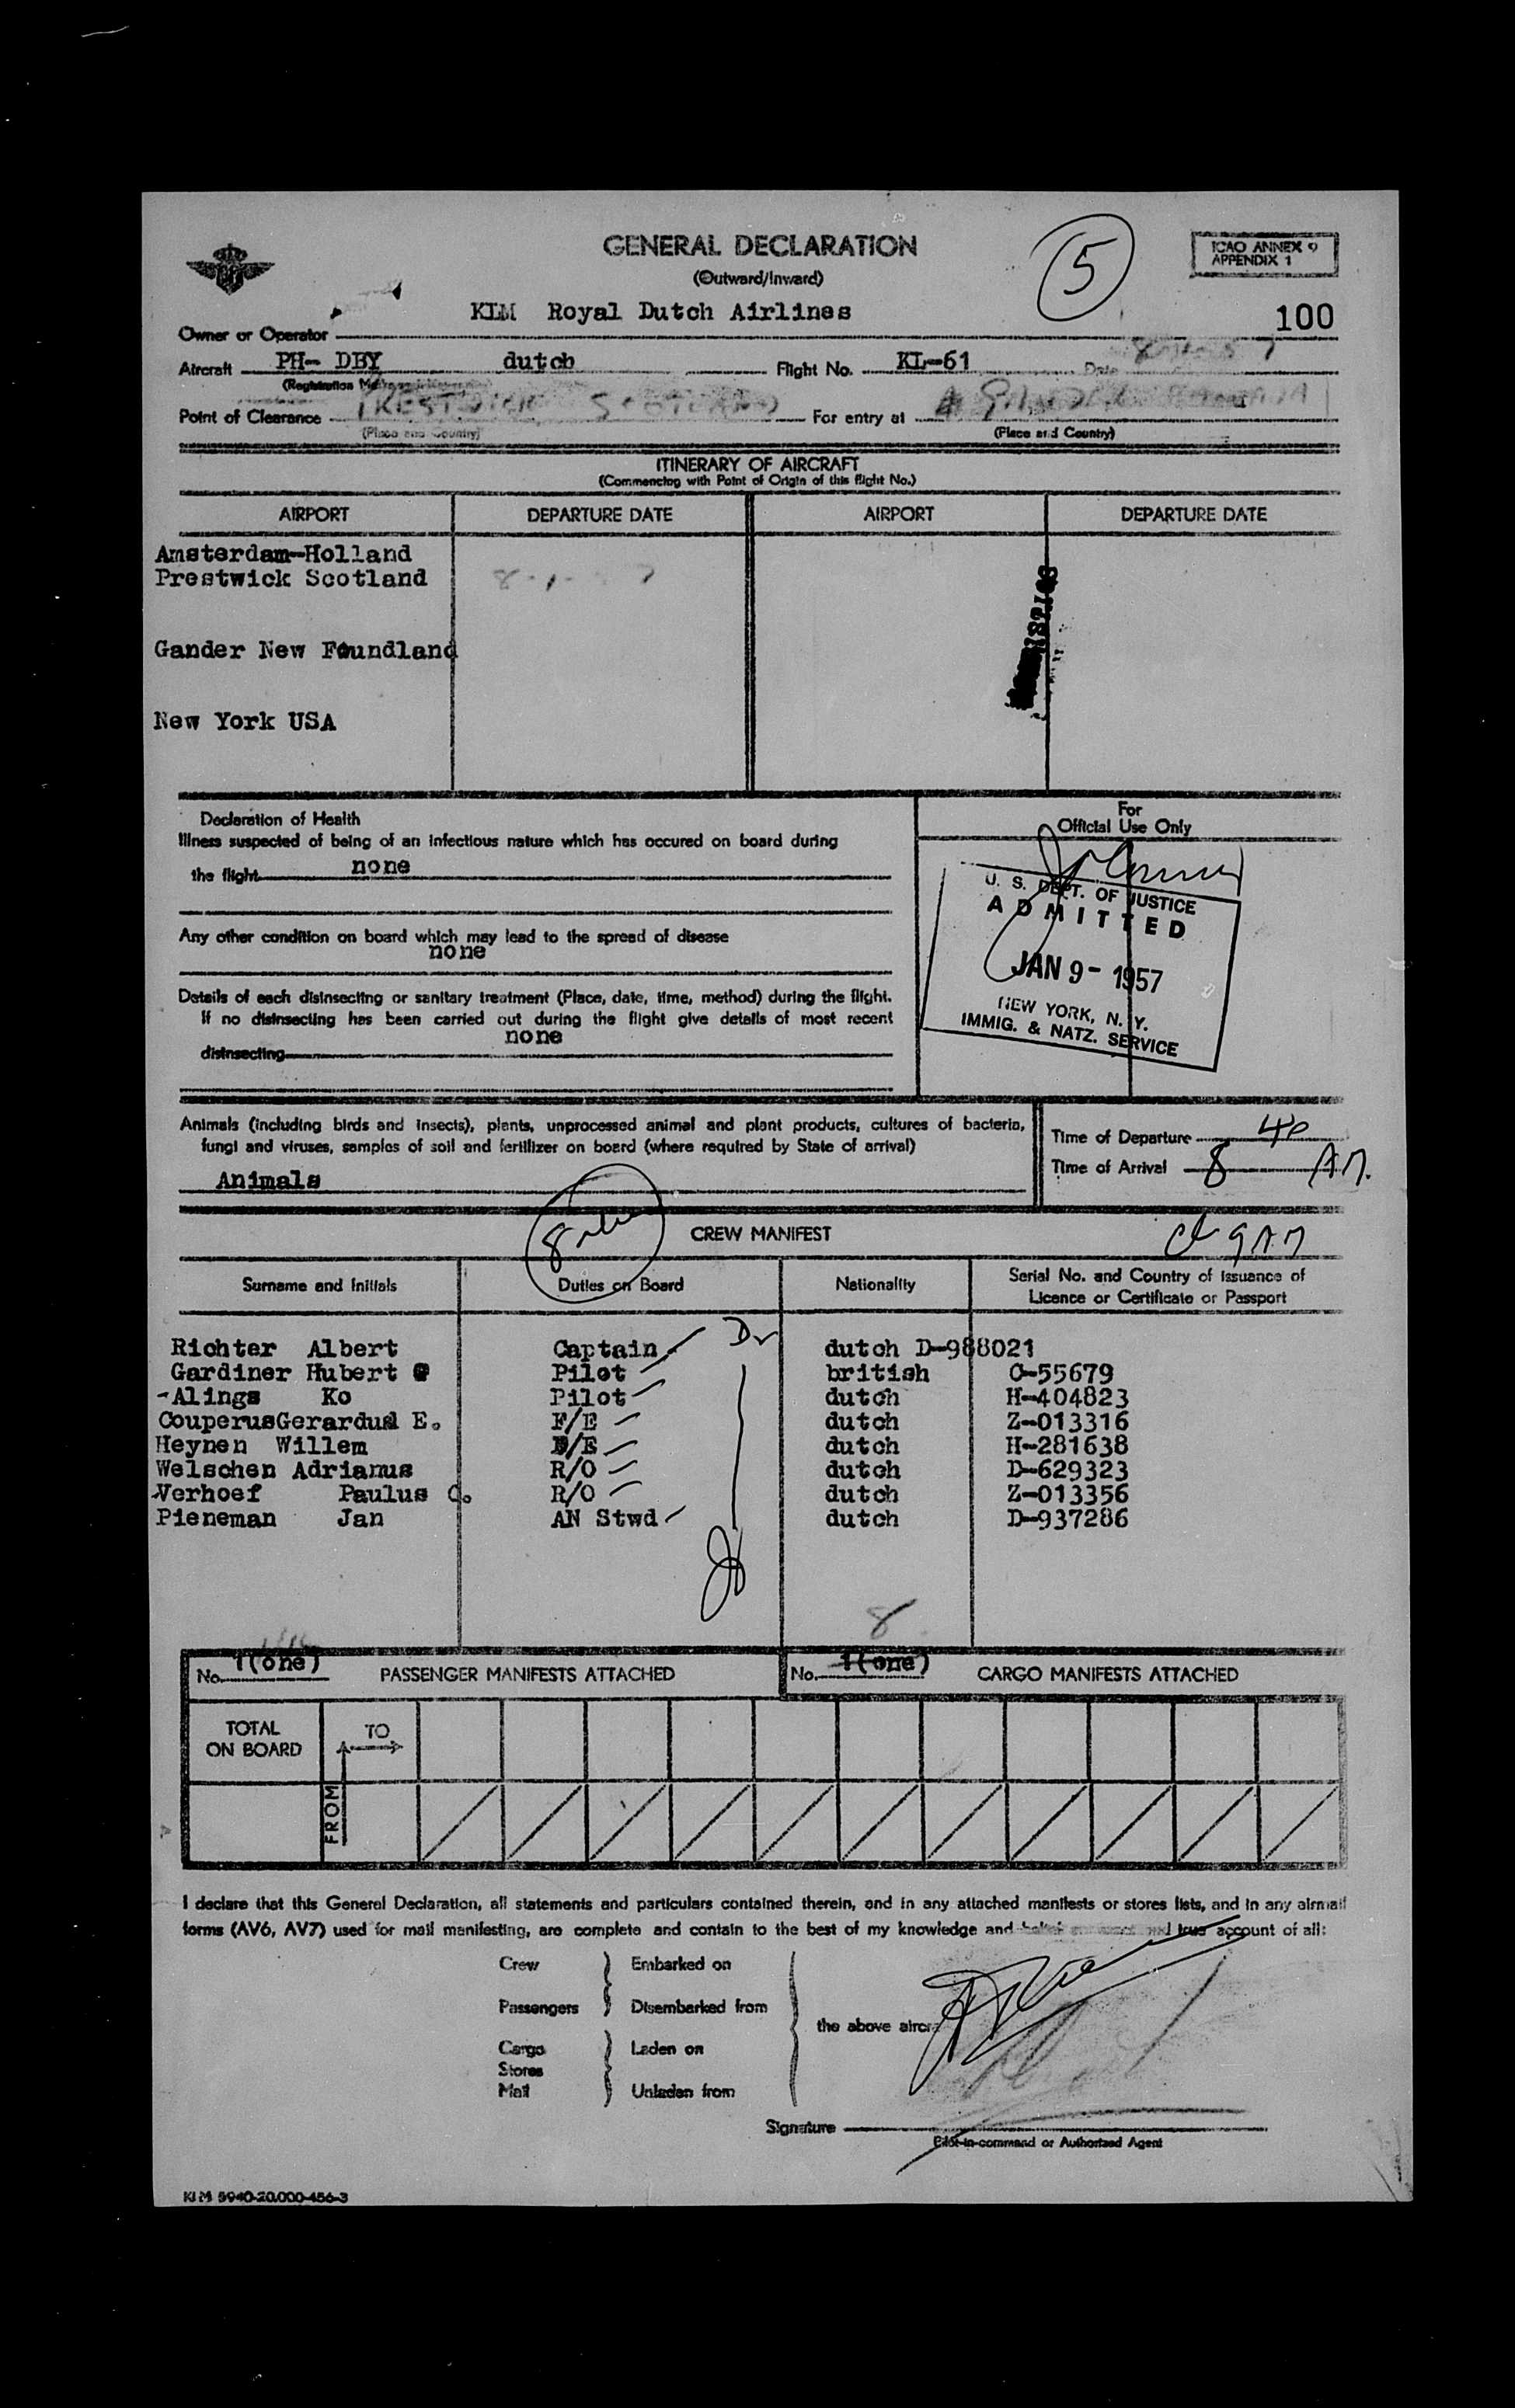 GENERAL DECLARATION
(Outward/Inward)
5
ICAO ANNEX 9
APPENDIX 1
100
Owner or Operator KLM Royal Dutch Airlines
Aircraft PH- DBY dutch Flight No. KL-61 Date
Point of Clearance PRESTWICK SCOTLAND For entry at
(Place and Country) (Place and Country)
ITINERARY OF AIRCRAFT
(Commencing with Point of Origin of this flight No.)
AIRPORT DEPARTURE DATE AIRPORT DEPARTURE DATE
Amsterdam-Holland
Prestwick Scotland 8-1-57
Gander New Foundland
New York USA
Declaration of Health
Illness suspected of being of an infectious nature which has occured on board during
the flight none
Any other condition on board which may lead to the spread of disease
none
Details of each disinsecting or sanitary treatment (Place, date, time, method) during the flight.
If no disinsecting has been carried out during the flight give details of most recent
disinsecting none
For
Official Use Only
U. S. DEPT. OF JUSTICE
ADMITTED
JAN 9- 1957
NEW YORK, N. Y.
IMMIG. & NATZ. SERVICE
Animals (including birds and insects), plants, unprocessed animal and plant products, cultures of bacteria,
fungi and viruses, samples of soil and fertilizer on board (where required by State of arrival)
Animals
Time of Departure 40
Time of Arrival 8 AM.
CREW MANIFEST
Surname and Initials Duties on Board Nationality Serial No. and Country of Issuance of
Licence or Certificate or Passport
Richter Albert Captain dutch D-988021
Gardiner Hubert Pilot british C-55679
-Alings Ko Pilot dutch H-404823
CouperusGerardus E. F/E dutch Z-013316
Heynen Willem F/E dutch H-281638
Welschen Adrianus R/O dutch D-629323
-Verhoef Paulus C. R/O dutch Z-013356
Pieneman Jan AN Stwd dutch D-937286
8
No. 1(one) PASSENGER MANIFESTS ATTACHED No. 1(one) CARGO MANIFESTS ATTACHED
TOTAL
ON BOARD
TO
FROM
I declare that this General Declaration, all statements and particulars contained therein, and in any attached manifests or stores lists, and in any airmail
forms (AV6, AV7) used for mail manifesting, are complete and contain to the best of my knowledge and belief true account of all:
Crew Embarked on
Passengers Disembarked from
the above aircra
Cargo Laden on
Stores
Mail Unladen from
Signature
Pilot-in-command or Authorized Agent
KLM 5940-20.000-456-3